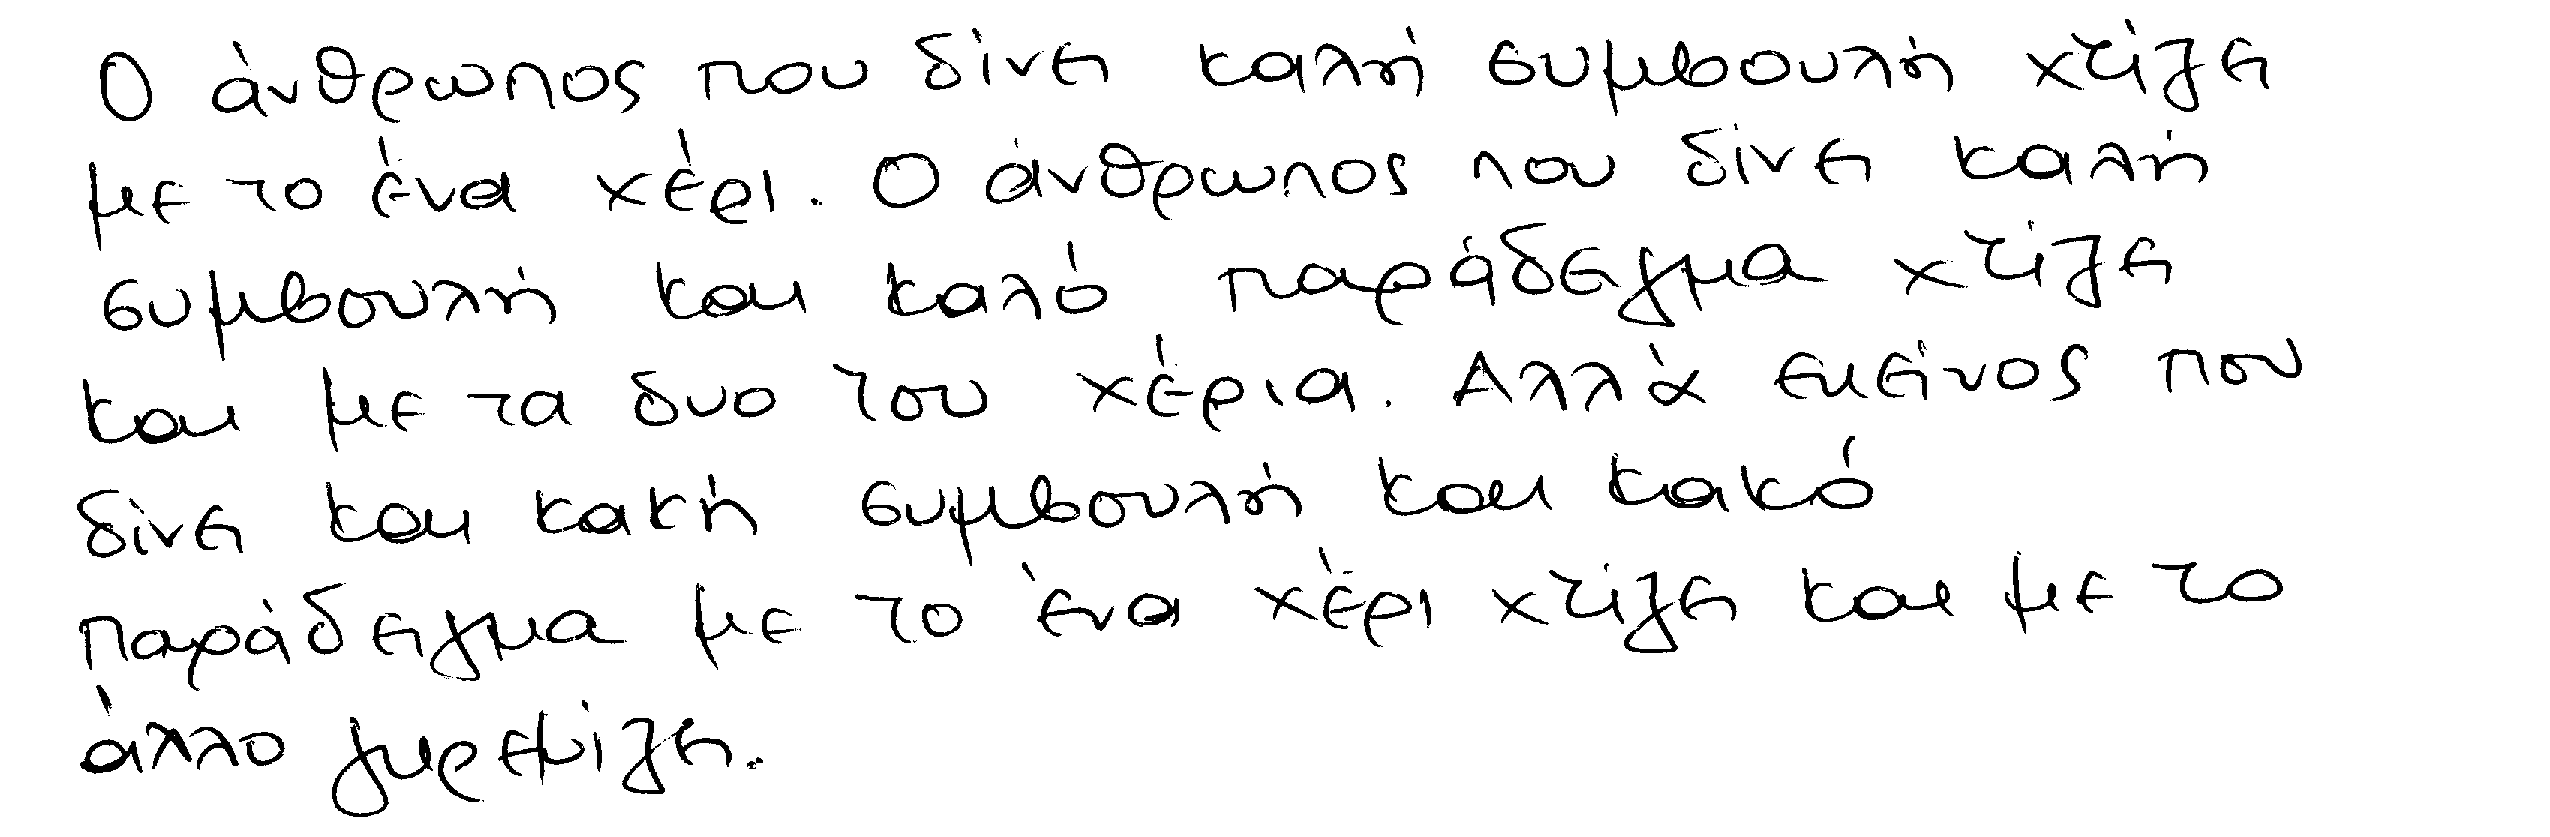 Ο άνθρωπος που δίνει καλή συμβουλή χτίζει
με το ένα χέρι. Ο άνθρωπος που δίνει καλή
συμβουλή και καλό παράδειγμα χτίζει
και με τα δυο του χέρια. Αλλά εκείνος που
δίνει και κακή συμβουλή και κακό
παράδειγμα με το ένα χέρι χτίζει και με το
άλλο γκρεμίζει.